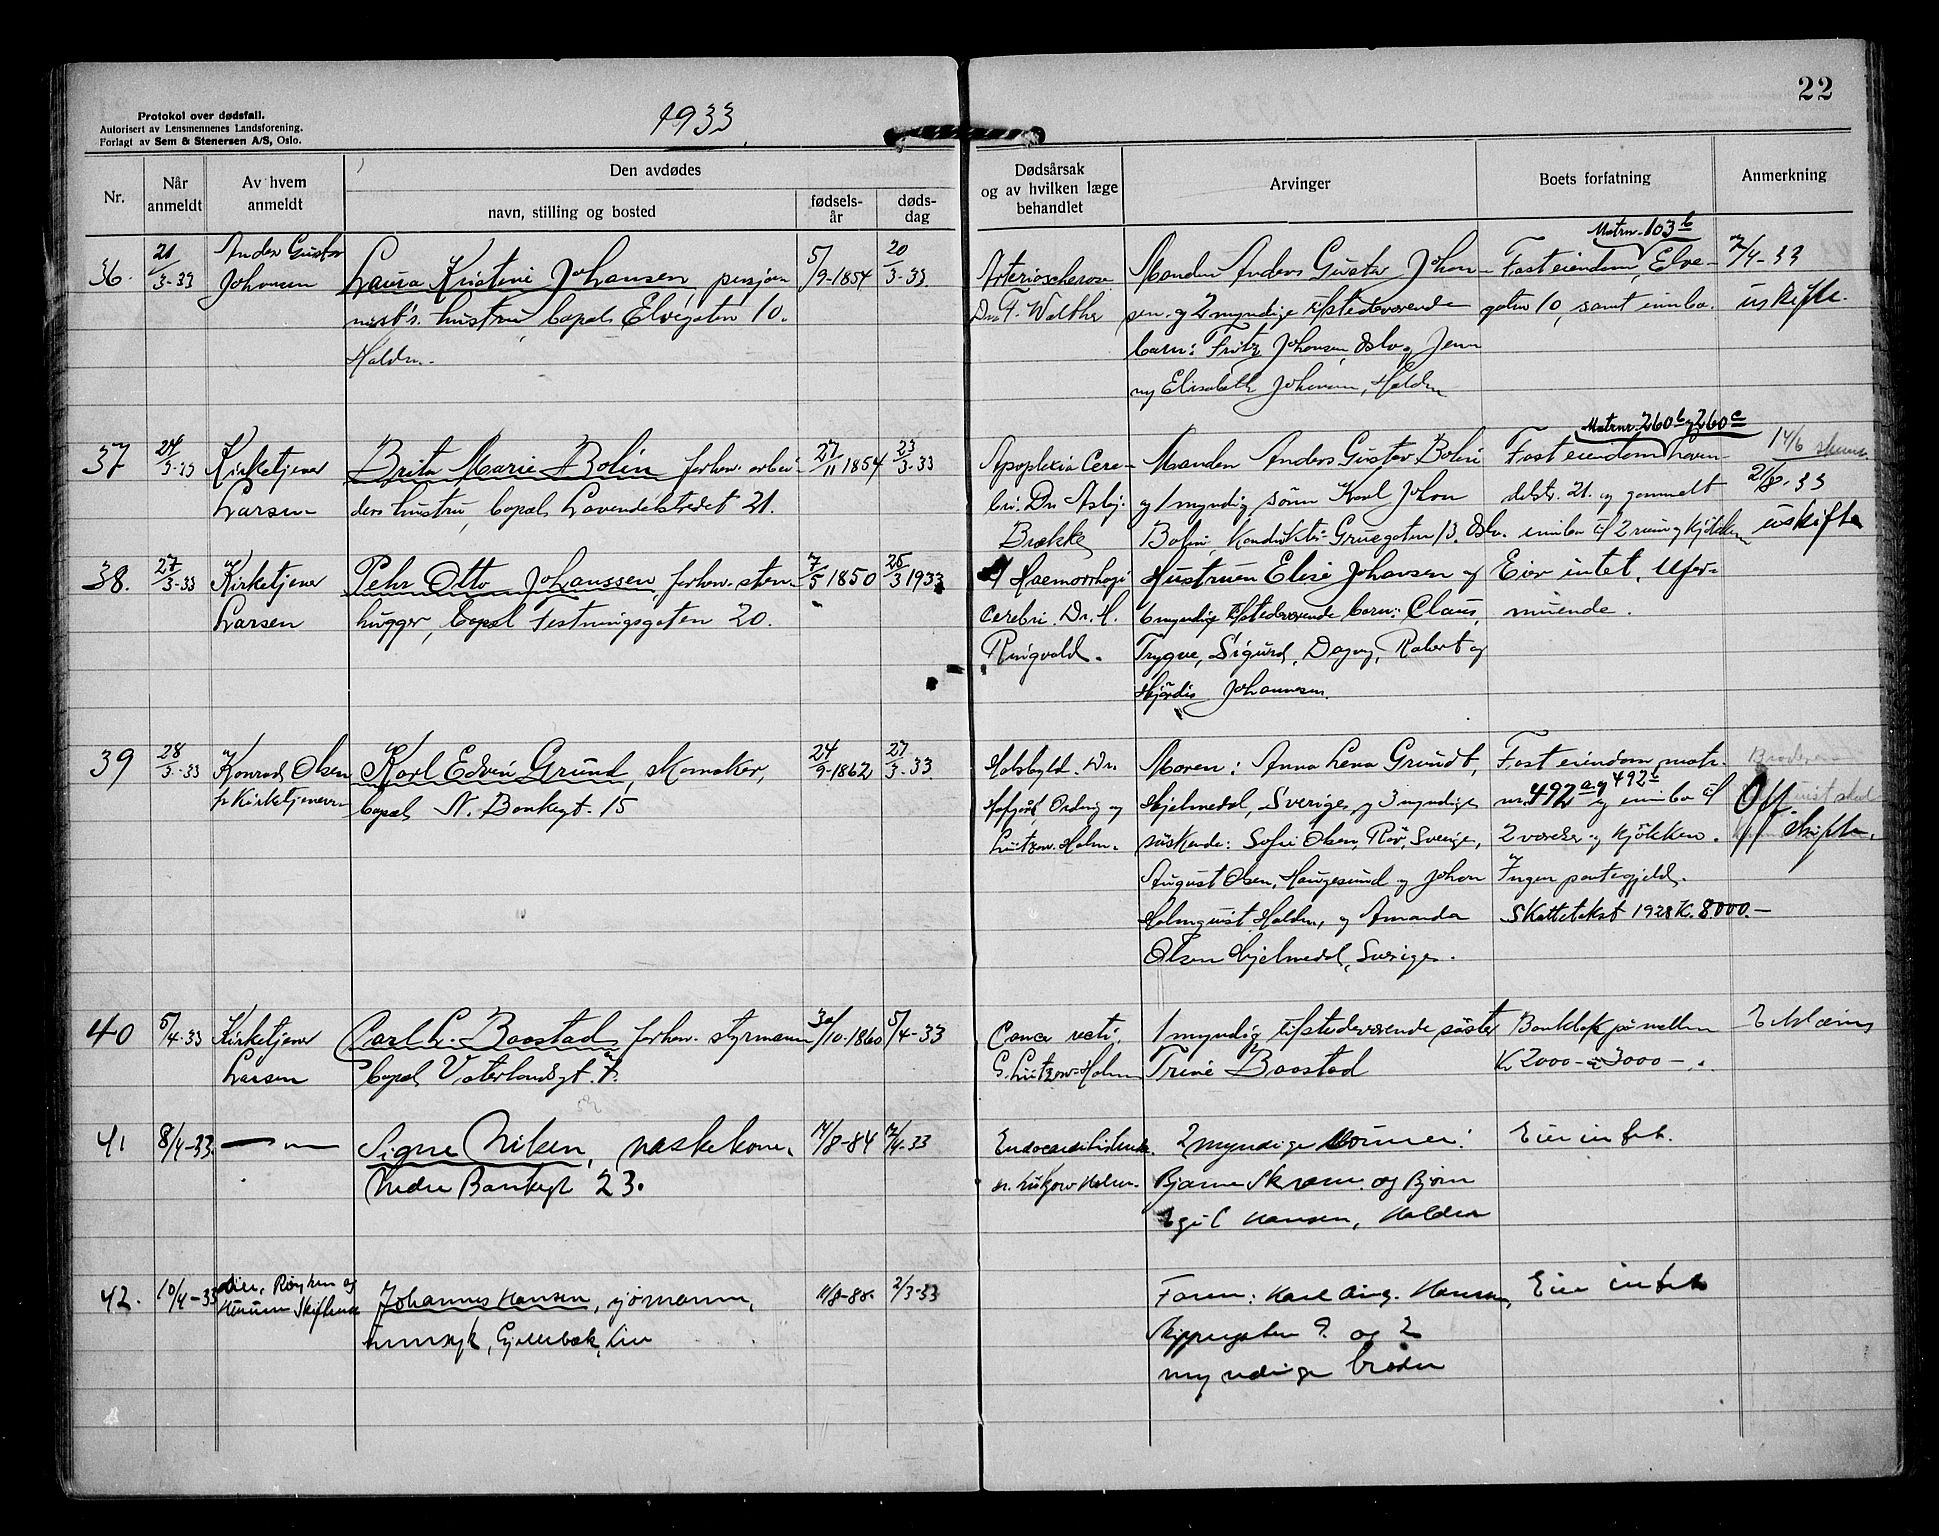 22
Protokol over dødsfall.
Autorisert av Lensmennenes Landsforening.
Forlagt av Sem & Stenersen A/S, Oslo.
1933
Nr.
Når anmeldt
Av hvem anmeldt
Den avdødes
navn, stilling og bosted
fødsels-år
døds-dag
Dødsårsak og av hvilken læge behandlet
Arvinger
Boets forfatning
Anmerkning
36. 21/3-33 Anders Gustav Johansen
Laura Kristine Johansen, pensjo-
nist's hustru, bopæl Elvegaten 10.
Halden.
5/9-1854 20/3-33
Dr. F. Walther
Manden Anders Gustav Johan-
sen og 2 myndige tilstedeværende
barn: Fritz Johansen, Oslo og Jen-
ny Elisabeth Johansen, Halden
Matrnr. 103 b
Fast eiendom, Elve-
gaten 10, samt innbo.
7/4-33
uskifte.
37 24/3-33 Kirketjener Larsen
Brita Marie Bolin forhen. arbei-
ders hustru, bopæl Lavendelstredet 21.
27/11 1854 23/3-33
Apoplexia Cere-
bri. Dr. Asbj.
Brække
Manden Anders Gustav Bolin
og 1 myndig sønn Karl Johan
Bolin, Gruegaten 13. Oslo.
Matrnr. 260 b og 260 c
Fast eiendom Laven-
delstr. 21. og gammelt
innbo til 2 rum og kjøkken
14/6
33
uskifte
38. 27/3-33 Kirketjener Larsen
Pehr Otto Johanssen forhen. sten-
hugger, bopæl Festningsgaten 20.
7/5 1850 25/3 1933
Haemorrhagi
cerebri. Dr. H.
Ringvold.
Hustruen Elise Johansen og
6 myndige tilstedeværende barn: Claus,
Trygve, Sigurd, Dagny, Robert og
Hjørdis Johannesen.
Eier intet. Ufor-
muende.
39 28/3-33 Konrad Olsen
f. Kirketjeneren
Karl Edvin Grund, skomaker,
bopæl N. Bankegt. 15
24/9-1862 27/3-33
Halsbyld. Dr.
Ording og
Lützow-Holm.
Moren: Anna Lena Grundt,
Hjelmedal, Sverige, og 3 myndige
søskende: Sofie Olsen, Sverige,
August Olsen, Haugesund og Johan
Holmquist Halden, og Amanda
Olsen Hjelmedal, Sverige.
Fast eiendom matr.
nr. 492 a og 492 b og innbo til
2 værelser og kjøkken.
Ingen pantegjeld.
Skattetakst 1928 K. 8000.-
Off. skifte.
40 5/4-33 Kirketjener Larsen
Carl L. Baastad forhen. styrmann
bopæl Vaterlandsgt. 7.
30/10-1860 5/4-33
Cancer recti.
G. Lützow-Holm
1 myndig tilstedeværende søster
Trine Baastad
Bankbok på mellem
Kr 2000- à 3000-.
Erklæring
41 8/4-33 — " —
Signe Nilsen, vaskekone,
Nedre Bankegt 23.
14/8-84 7/4-33
Lützow Holm.
2 myndige sønner:
Bjarne Skram. og Bjørn
Egil Hansen, Halden
Eier intet.
42. 10/4-33 Lier, Røyken og
Hurum Skifterett
Johannes Hansen, sjømann,
Gjellebæk, Lier
11/8-88. 2/3-33
Faren: Karl Aug. Hansen,
Skippergaten 9. og 2
myndige brødre
Eier intet